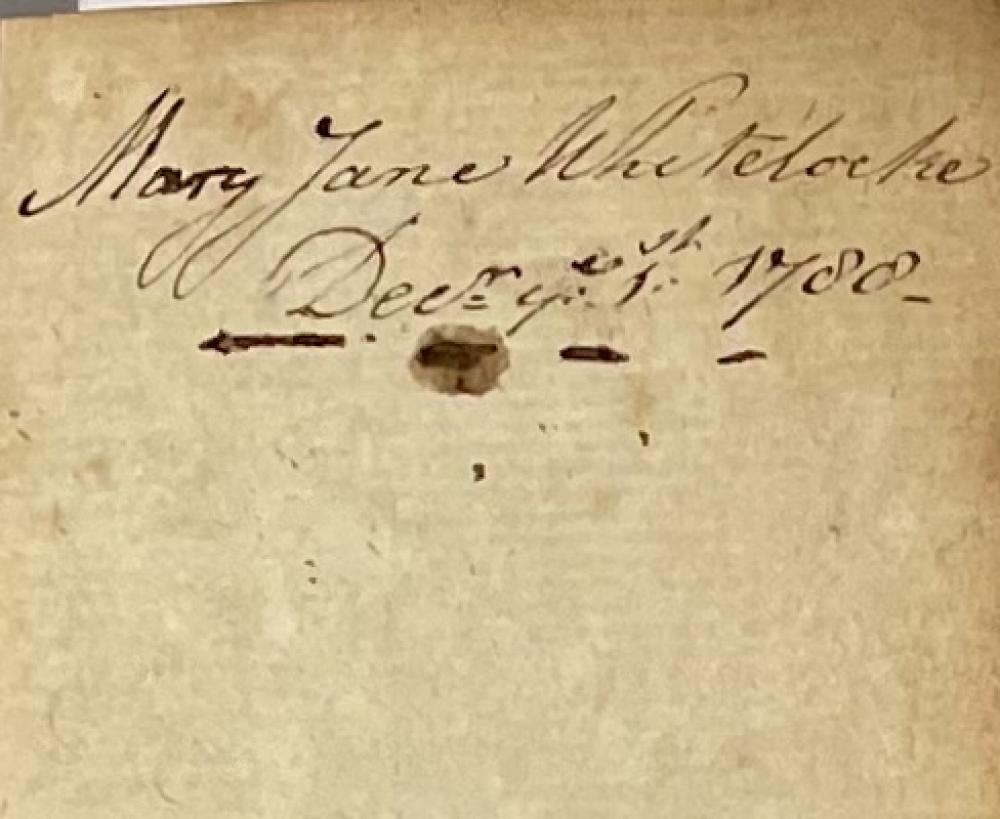 Mary Jane Whitelocke
Decr ye 1st 1788